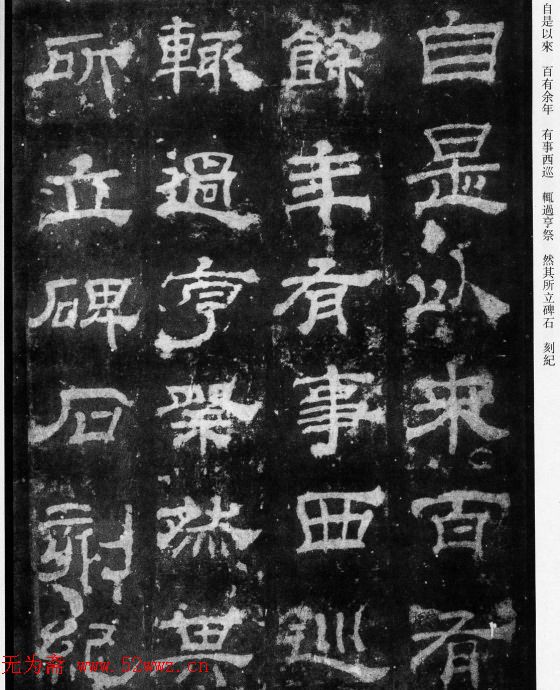 自是以來 百有余年 有事西巡 輒過亨祭 然其所立碑石 刻紀
自是以來百有
餘年有事西巡
輒過亨祭然其
所立碑石刻紀
无为斋 www.52wwz.cn